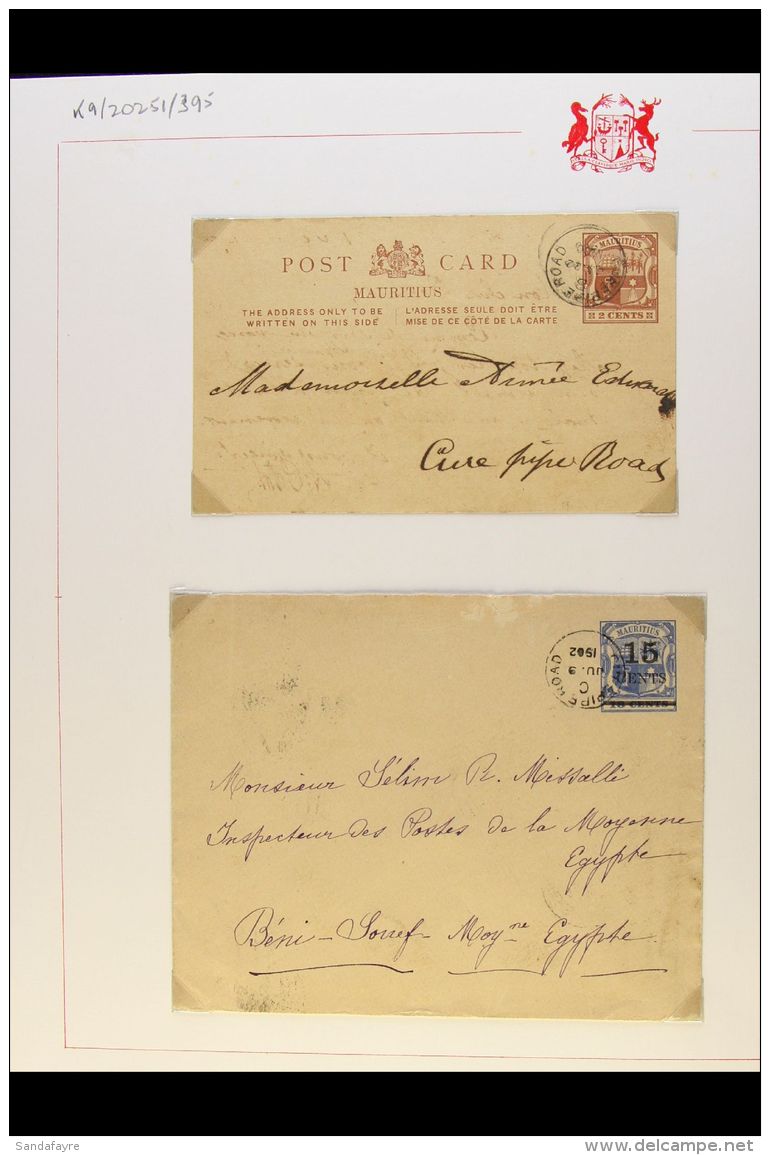 K9/20251/395
POST CARD
MAURITIUS
THE ADDRESS ONLY TO BE
WRITTEN ON THIS SIDE
L'ADRESSE SEULE DOIT ÊTRE
MISE DE CE CÔTÉ DE LA CARTE
MAURITIUS
2 CENTS
ROAD
Mademoiselle Aimée
Curepipe Road
MAURITIUS
15
CENTS
CENTS
PIPE ROAD
C
JU. 9
1902
Monsieur Sélim R. Missallé
Inspecteur des Postes de la Moyenne
Egypte
Béni-Souef- Moy.ne Egypte.
Sandafayre
delcampe.net